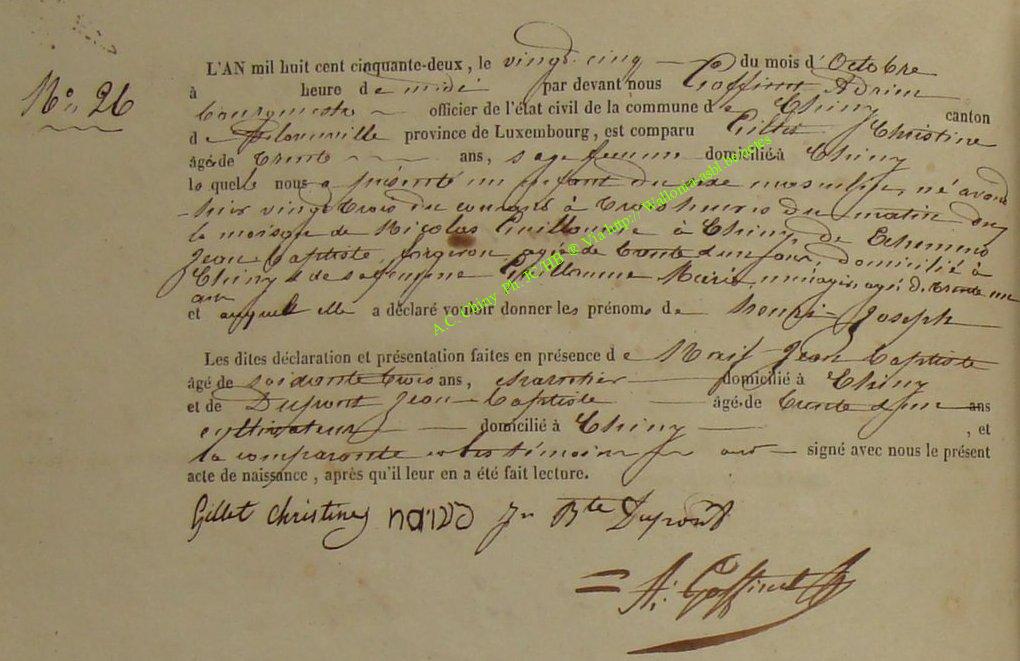 No 26
L'AN mil huit cent cinquante-deux, le vingt-cinq du mois d'Octobre
à heure de midi par devant nous Goffinet Adrien
bourgmestre officier de l'état civil de la commune de Chiny canton
de Florenville province de Luxembourg, est comparu Gillet Christine
âgée de trente ans, sage femme domicilié à Chiny
laquelle nous a présenté un enfant du sexe masculin, né avant
hier vingt trois du courant à trois heures du matin
la maison de Nicolas Guillaume à Chiny, de
Jean Baptiste, forgeron, agé de trente domicilié à
Chiny & de sa femme Guillaume Marie, ménagère, agée de trente un
ans
et auquel elle a déclaré vouloir donner les prénoms de henri-Joseph
Les dites déclaration et présentation faites en présence de Jean Baptiste
âgé de soixante trois ans, domicilié à Chiny
et de Dupont Jean-Baptiste âgé de trente d'un ans
cultivateur domicilié à Chiny , et
la comparante et les témoins ont signé avec nous le présent
acte de naissance, après qu'il leur en a été fait lecture.
Gillet Christine Jn Bte Dupont
A. Goffinet
A.C. Chiny Ph. JC.HH ® Via http:// Wallonia-asbl.be/actes